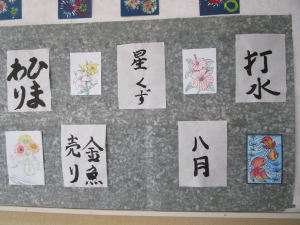 打水
星くず
ひまわり
八月
金魚売り